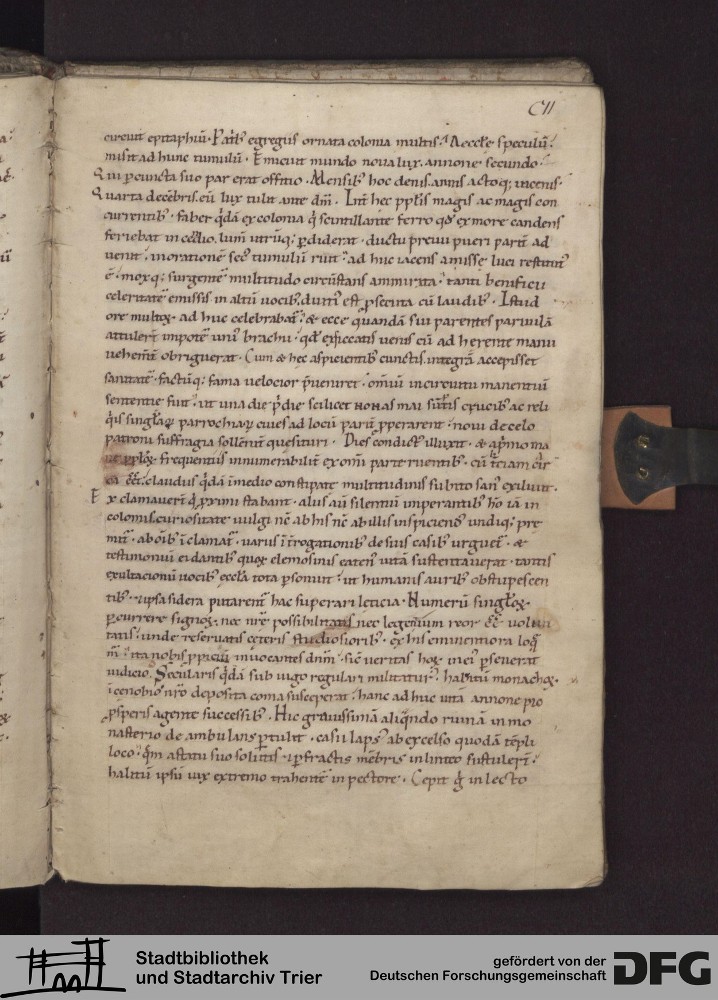 CII
circuit epitaphiū. Patrib; egregiis ornata colonia multis. Aecclę speculū
misit ad hunc tumulū. Emicuit mundo nova lux. annone secundo
Qui p cuncta suo par erat offitio. Mensib; hoc denis. annis actoq; vicenis.
Quarta decēbris. eū lux tulit ante dm̄. Int hec pplis magis ac magis con
currentib; faber qdā ex colonia q scintillante ferro qd ex more candens
feriebat in oculo. lum utruq; pdiderat. ductu previi pueri partū ad
venit. in oratione sec tumulū ruit. ad huc iacens amisse luci restitut
ē. moxq; surgente multitudo circūstans ammirata. tanti benificii
celeritatē emissis in altū vocib; diutin est psecuta cū laudib;. Istud
ore multoꝝ ad huc celebrabat. & ecce quandā sui parentes parvulā
attuler impotē uni brachii. qd exsiccatis venis cū ad herente manu
vehem obriguerat. Cum & hec aspicientib; cunctis. integrā accepisset
sanitatē. factūq; fama velocior pveniret. omniū in circuitu manentiū
sententie fuit. ut una die pdie scilicet nonas mai sūptis crucib; ac reli
qis singlaꝝ parrochiaꝝ cives ad locū parit pperarent. novi de celo
patroni suffragia sollent quesituri. Dies condict illuxit. & a primo ma
ne pploꝝ frequentiis innumerabilit ex omi parte ruentib;. cū tciam cir
ca claudus qdā in medio constipate multitudinis subito san exiluit.
Exclamaver q pximi stabant. aliis aū silentiū imperantib; ho iā in
colomis. curiositate vulgi nc ab his nc ab illis inspiciend undiq; pre
mit. ab oīb; īclamat. variis īrogationib; de suis casib; urguet. &
testimoniū ei dantib; quoꝝ elemosinis eaten vitā sustentaverat. tantis
exultacionū vocib; eccla tota psonuit. ut humanis aurib; obstupescen
tib; ipsa sidera putarent hac superari leticia. Numerū singloꝝ
pcurrere signoꝝ. nec nre possibilitatis nec legentium reor volun
tatis. unde reservatis ceteris studiosiorib;. ex his eminentiora loq
m. ita nobis ppiciū invocantes dnm. sic veritas hoꝝ in ei pseverat
iudicio. Secularis qdā sub iugo regulari militatur. habitū monachoꝝ.
ī cenobio nro deposita coma susceperat. hanc ad huc vitā annone pio
psperis agente successib;. Hic gravissimā aliqndo ruinā in mo
nasterio de ambulans ptulit. casu laps ab excelso quodā tēpli
loco. qm a statu suo solutis. pfractis mēbris in linteo sustuler.
halitū ipsū vix extremo trahentē in pectore. Cepit g in lecto
Stadtbibliothek
und Stadtarchiv Trier
gefördert von der
Deutschen Forschungsgemeinschaft
DFG